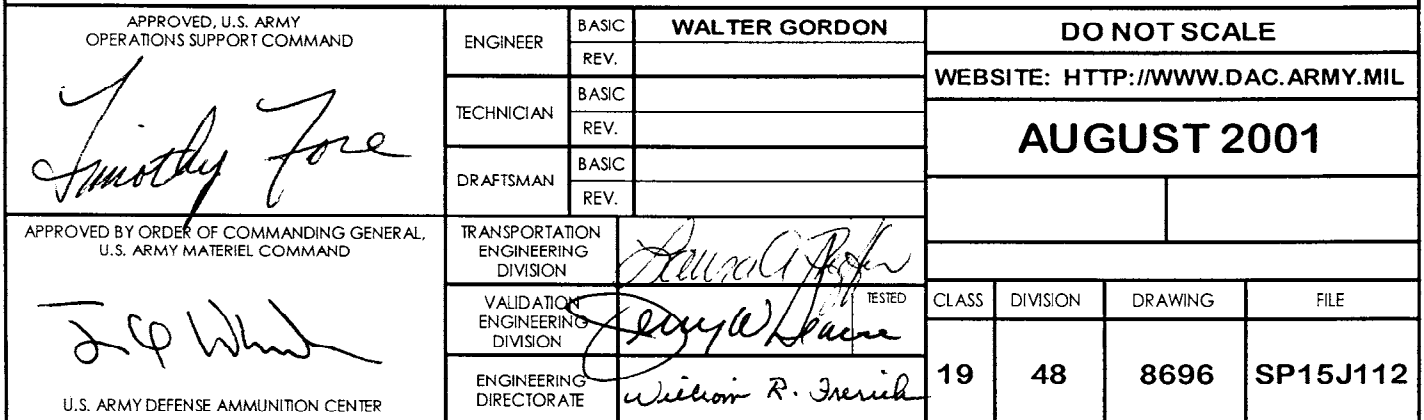 APPROVED, U.S. ARMY
OPERATIONS SUPPORT COMMAND
Timothy Fore
APPROVED BY ORDER OF COMMANDING GENERAL,
U.S. ARMY MATERIEL COMMAND
U.S. ARMY DEFENSE AMMUNITION CENTER
ENGINEER
BASIC
WALTER GORDON
REV.
TECHNICIAN
BASIC
REV.
DRAFTSMAN
BASIC
REV.
TRANSPORTATION
ENGINEERING
DIVISION
Laura A
VALIDATION
ENGINEERING
DIVISION
TESTED
Jerry W
ENGINEERING
DIRECTORATE
William R. Frerich
DO NOT SCALE
WEBSITE: HTTP://WWW.DAC.ARMY.MIL
AUGUST 2001
CLASS DIVISION DRAWING FILE
19 48 8696 SP15J112